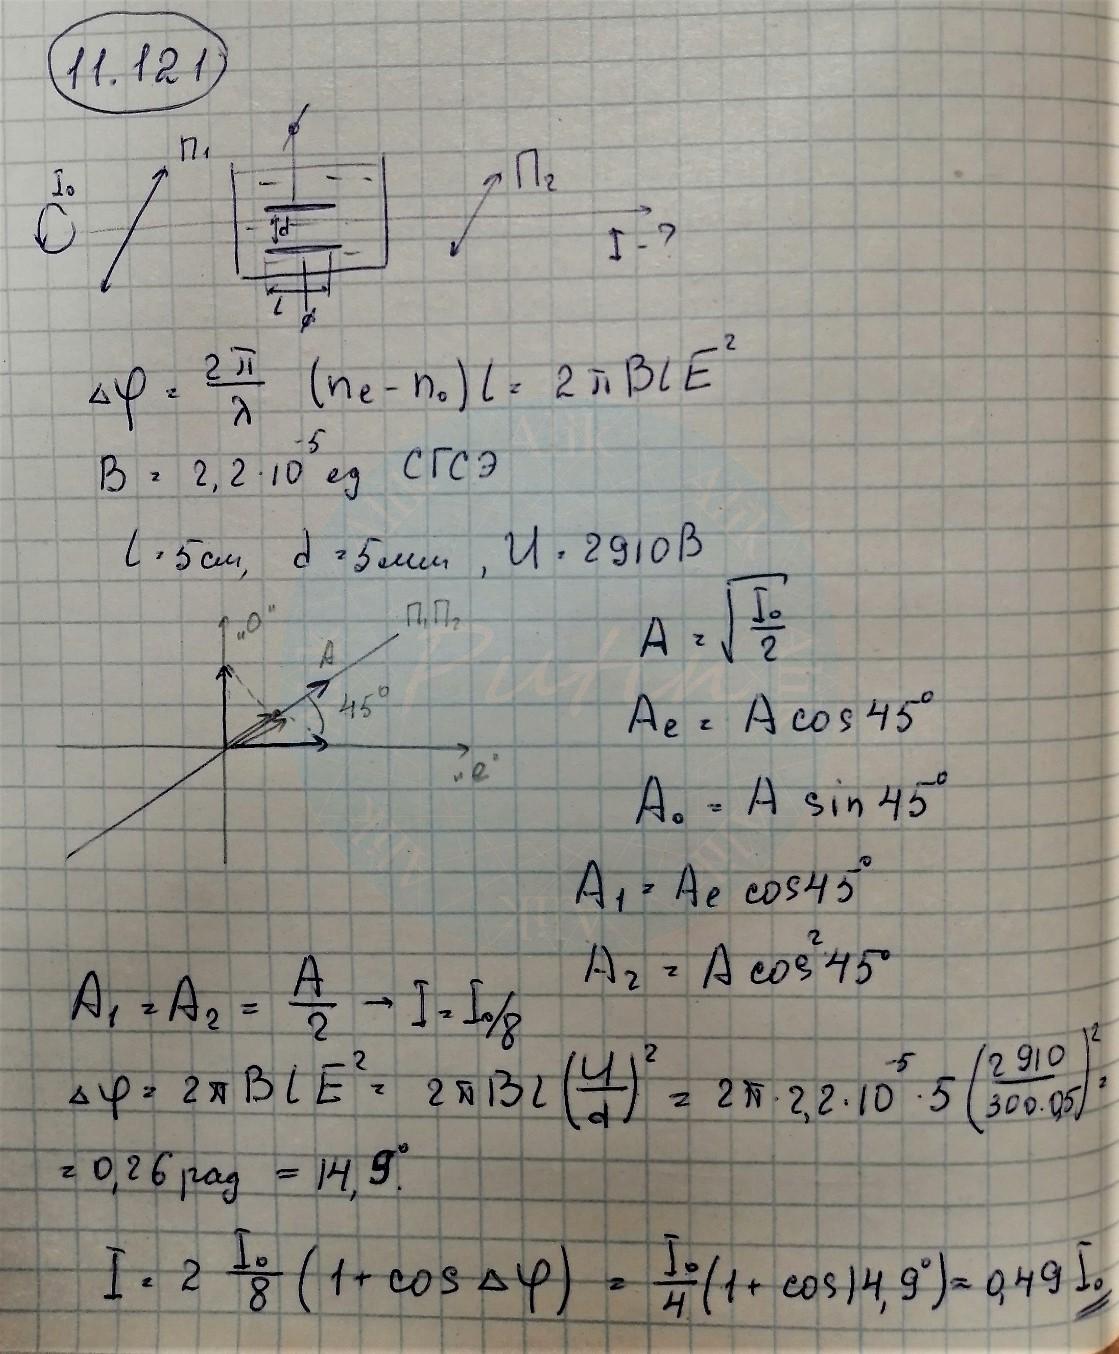 11.121
I₀ П₁ П₂
d
I - ?
l
Δφ = 2π/λ (nₑ - n₀) l = 2πBlE²
B = 2,2·10⁻⁵ ед СГСЭ
l = 5см, d = 5мм, U = 2910В
"о" П₁П₂
A
45°
"е"
A = √(I₀/2)
Aₑ = A cos45°
A₀ = A sin45°
A₁ = Aₑ cos45°
A₂ = A cos²45°
A₁ = A₂ = A/2 → I = I₀/8
Δφ = 2πBlE² = 2πBl(U/d)² = 2π·2,2·10⁻⁵·5(2910/300·0,5)² =
= 0,26 рад = 14,9°.
I = 2 I₀/8 (1 + cos Δφ) = I₀/4 (1 + cos14,9°) = 0,49 I₀
Alik
Ритм